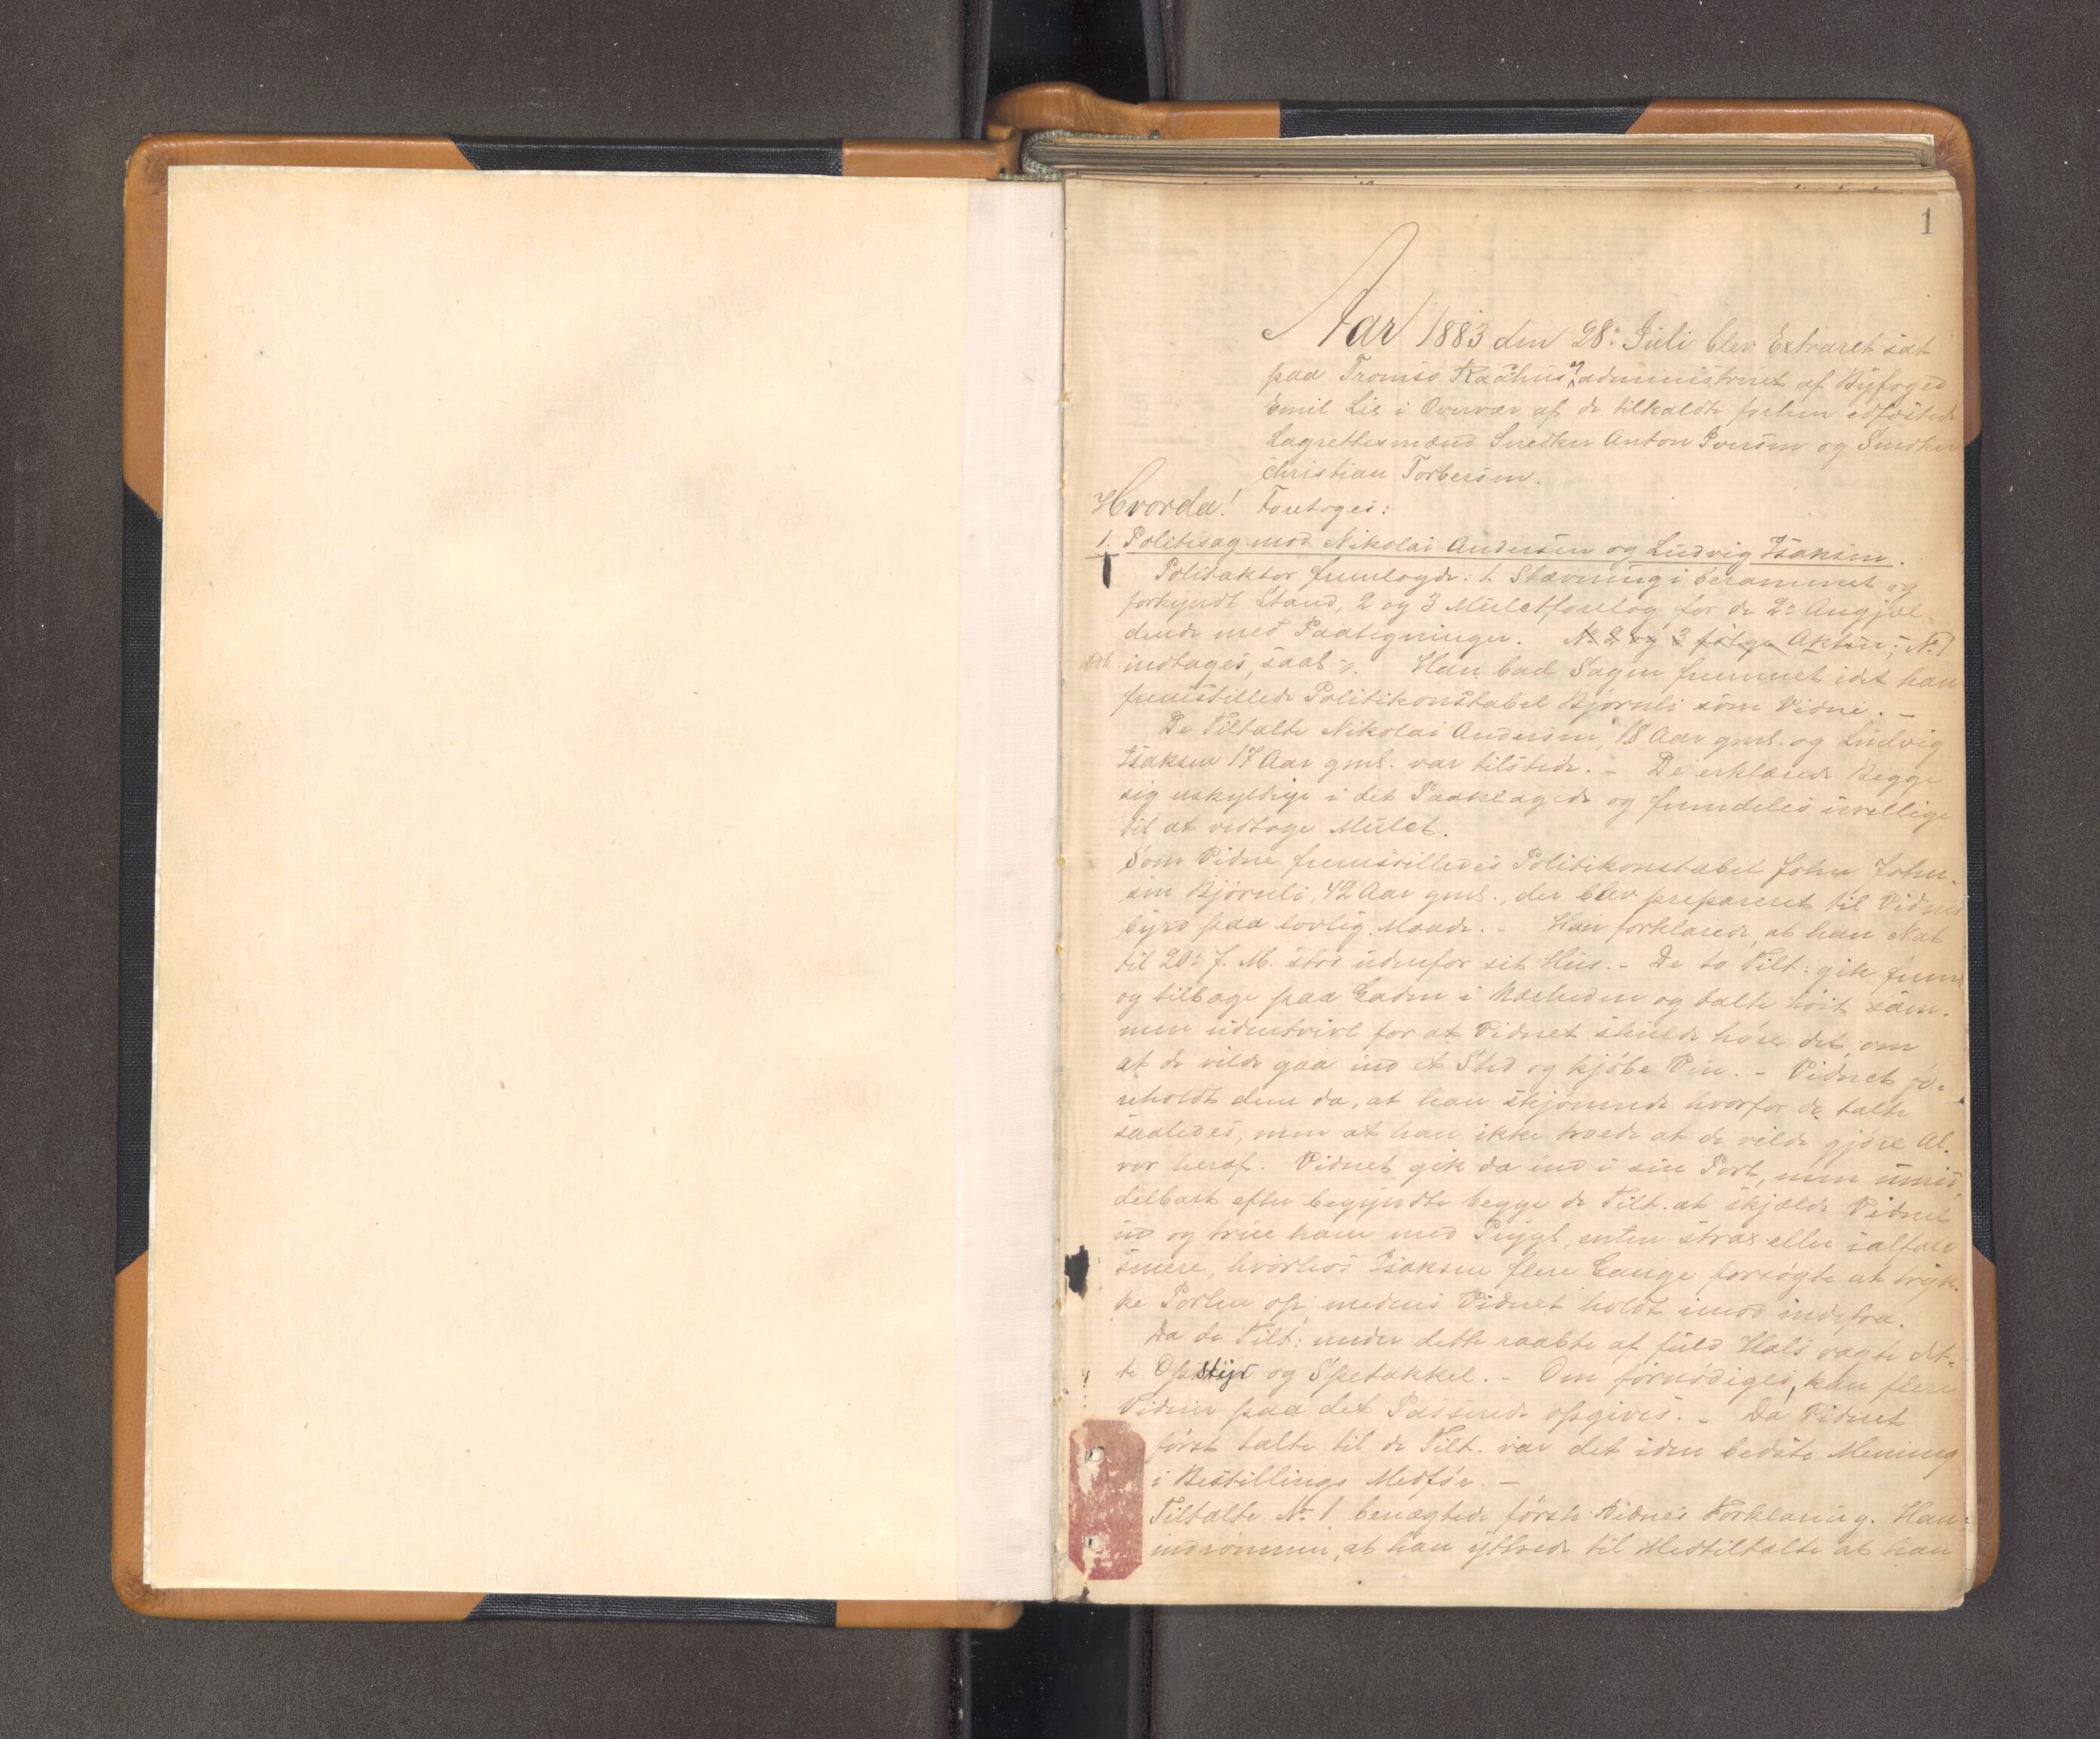 1
Aar 1883 den 28: Juli blev Extraret sat
paa Tromsø Raadhus og administreret af Byfoged
Emil Lie i Overvær af de tilkaldte forhen edfæstede
Lagrettesmænd Snedker Anton Iversen og Snedker
Christian Torbersen.
Hvorda! Foretoges:
1. Politisag mod Nikolai Andersen og Ludvig Isaksen.
Politiaktor fremlagde: 1. Stævning i berammet og
forkyndt Stand, 2 og 3 Mulctforelæg for de 2: Angjæl-
dende med Paategninger. No 2 og 3 følge Akten; No 1
indtages, saal: Han bad Sagen fremmet idet han
fremstillede Politikonstabel Bjørnli som Vidne. -
De Tiltalte Nikolai Andersen, 18 Aar gml. og Ludvig
Isaksen 17 Aar gml. var tilstede. - De erklærede Begge
sig uskyldige i det Paaklagede og fremdeles uvillige
til at vedtage Mulct.
Som Vidne fremstilledes Politikonstabel John John-
sen Bjørnli, 42 Aar gml., der blev præpareret til Vidnes
byrd paa lovlig Maade. - Han forklarede, at han Nat
til 20: f. M. stod udenfor sit Hus. - De to Tilt: gik frem
og tilbage paa Gaden i Nærheden og talte høit sam-
men udentvivl for at Vidnet skulde høre det, om
at de vilde gaa ind et Sted og kjøbe Vin. - Vidnet fo-
reholdt dem da, at han skjønnede hvorfor de talte
saaledes, men at han ikke troede at de vilde gjøre Al-
vor heraf. Vidnet gik da ind i sin Port, men umid
delbart efter begyndte begge de Tilt. at skjælde Vidnet
ud og true ham med Prygl, enten strax eller ialfald
senere, hvorhos Isaksen flere Gange forsøgte at tryk-
ke Porten op, medens Vidnet holdt imod indefra.
Da de Tilt: under dette raabte af fuld Hals vagte det-
te Opstyr og Spetakkel. - Om fornødiges, kan flere
Vidner paa det Passerede opgives. - Da Vidnet
først talte til de Tilt. var det iden bedste Mening
i Bestillings Medfør. -
Tiltalte No 1 benægtede første Vidnes Forklaring. Han
indrømmer, at han yttrede til Medtiltalte at han